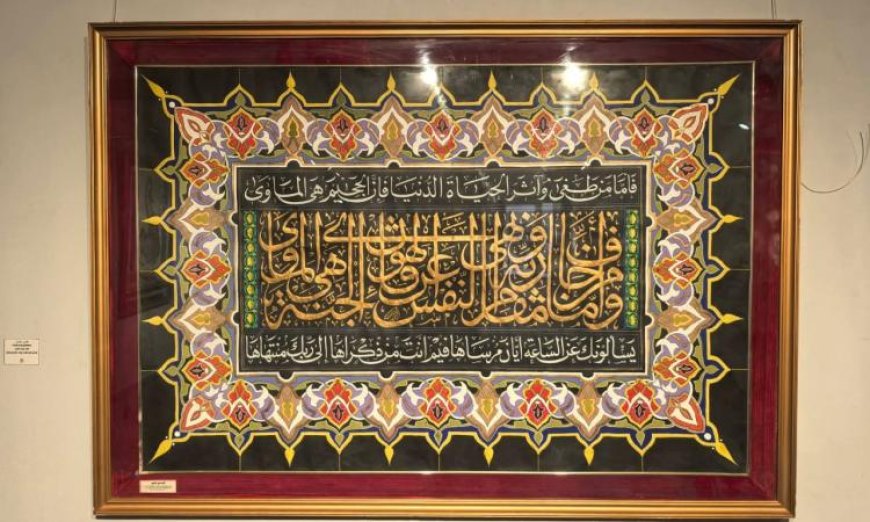 فاما من طغى وآثر الحياة الدنيا فان الجحيم هي المأوى
وأما من خاف مقام ربه ونهى النفس عن الهوى فإن الجنة هي المأوى
يسألونك عن الساعة أيان مرساها فيم انت من ذكراها الى ربك منتهاها